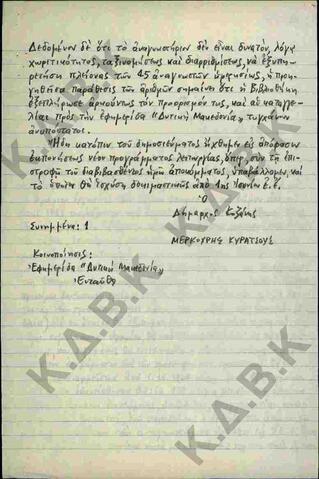 Δεδομένου δὲ ὅτι τὸ ἀναγνωστήριον δὲν εἶναι δυνατόν, λόγῳ
χωρητικότητος, ταξινομήσεως καὶ διαρρυθμίσεως, νὰ ἐξυπη-
ρετήσῃ πλείονας τῶν 45 ἀναγνωστῶν ἡμερησίως, ἡ προη-
γηθεῖσα παράθεσις τῶν ἀριθμῶν σημαίνει ὅτι ἡ Βιβλιοθήκη
ἐξεπλήρωσε ἀρκούντως τὸν προορισμόν της, καὶ αἱ καταγγε-
λίαι πρὸς τὴν ἐφημερίδα "Δυτικὴ Μακεδονία", τυγχάνουν
ἀνυπόστατοι.
Ἤδη κατόπιν τοῦ δημοσιεύματος ἤχθημεν εἰς ἀπόφασιν
ἐκπονήσεως νέου προγράμματος λειτουργίας, ὅπερ σὺν τῇ ἐπι-
στροφῇ τοῦ διαβιβασθέντος ἡμῖν ἀποκόμματος, ὑποβάλλομεν, καὶ
τὸ ὁποῖον θὰ ἰσχύσῃ δοκιμαστικῶς ἀπὸ 1ης Ἰουνίου ἐ.ἔ.
Ὁ
Δήμαρχος Κοζάνης
Συνημμένα: 1
ΜΕΡΚΟΥΡΗΣ ΚΥΡΑΤΣΟΥΣ
Κοινοποίησις:
Ἐφημερίδα "Δυτικὴ Μακεδονία"
Ἐνταῦθα
Κ.Δ.Β.Κ
Κ.Δ.Β.Κ
Κ.Δ.Β.Κ